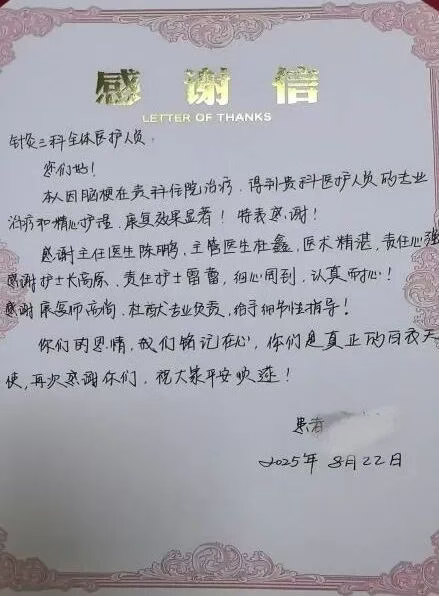 感谢信
LETTER OF THANKS
针灸三科全体医护人员.
您们好!
本人因脑梗在贵科住院治疗,得到贵科医护人员的专业
治疗和精心护理,康复效果显著!特表感谢!
感谢主任医生陈鹏,主管医生杜鑫,医术精湛,责任心强
感谢护士长高原、责任护士雷蕾,细心周到,认真耐心!
感谢康复师高尚、杜猷专业负责,给予细节性指导!
你们的恩情,我们铭记在心,你们是真正的白衣天
使,再次感谢你们,祝大家平安欢送!
患者
2025年8月22日